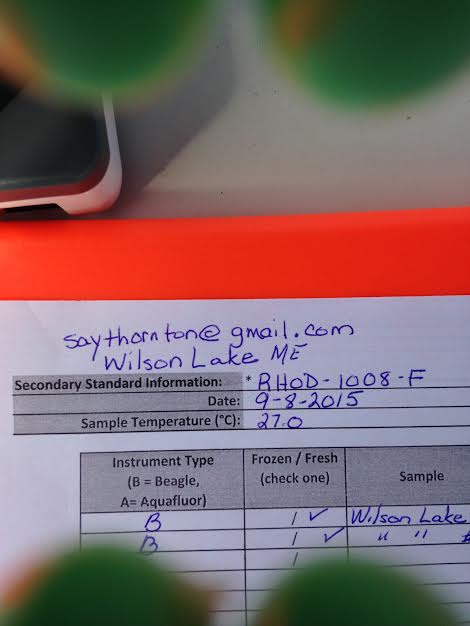 saythornton@gmail.com
Wilson Lake ME
Secondary Standard Information: * RHOD-1008-F
Date: 9-8-2015
Sample Temperature (°C): 27.0
Instrument Type (B = Beagle, A= Aquafluor) Frozen / Fresh (check one) Sample
B / ✓ Wilson Lake
B / ✓ " "
/